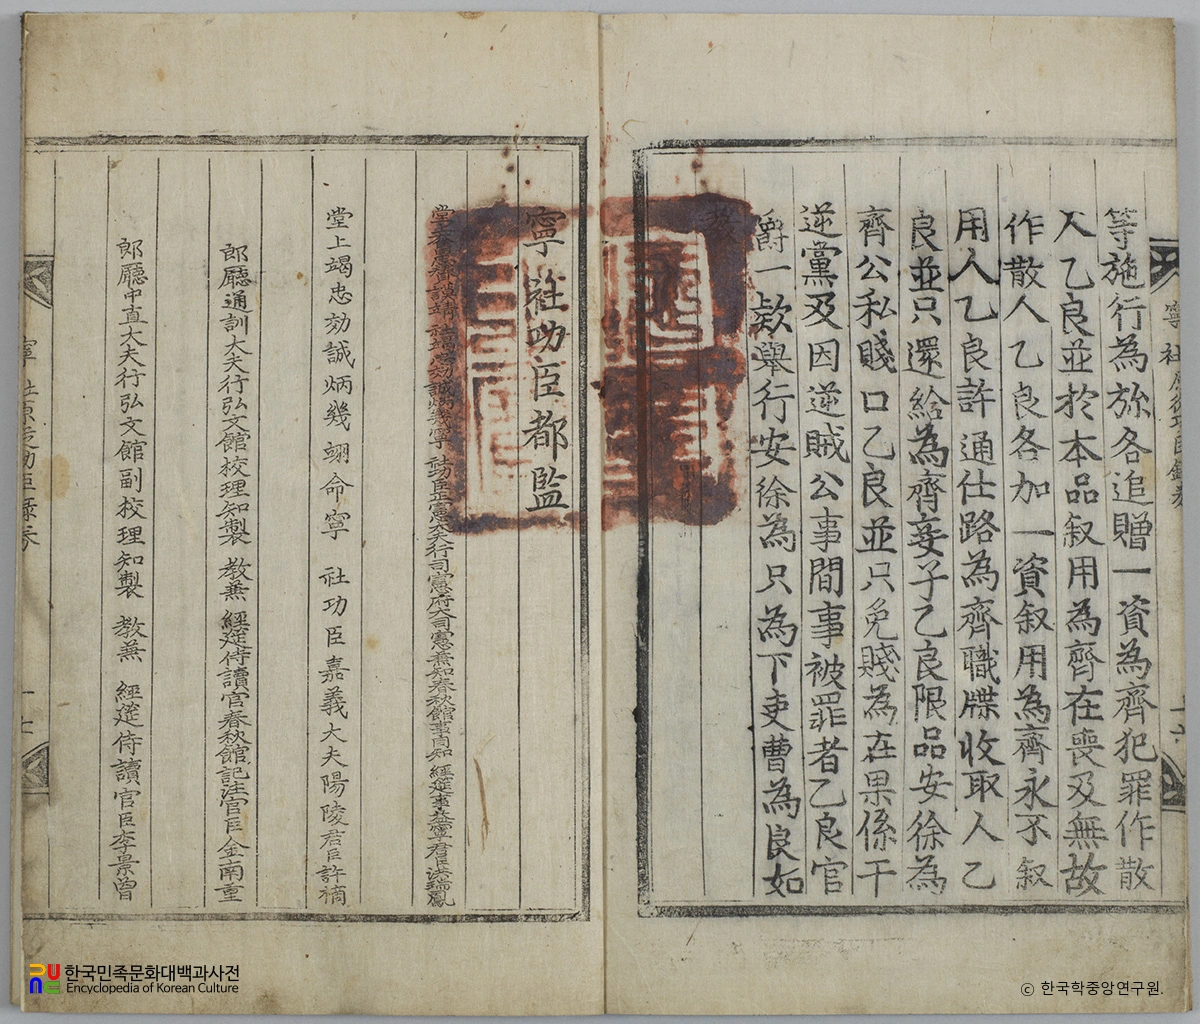 等施行為㫆各追贈一資為齊犯罪作散
人乙良並於本品叙用為齊在喪及無故
作散人乙良各加一資叙用為齊永不叙
用人乙良許通仕路為齊職牒收取人乙
良並只還給為齊妾子乙良限品安徐為
齊公私賤口乙良並只免賤為在果係干
逆黨及因逆賊公事間事被罪者乙良官
爵一款擧行安徐為只為下吏曹為良如
敎
寧社功臣都監
堂上竭忠効誠炳幾翊命寧 社功臣嘉義大夫陽陵君臣許𥛚
郎廳通訓大夫行弘文館校理知製 教兼 經筵侍讀官春秋館記注官臣金南重
郎廳中直大夫行弘文館副校理知製 教兼 經筵侍讀官臣李景曾
한국민족문화대백과사전
Encyclopedia of Korean Culture
ⓒ 한국학중앙연구원.